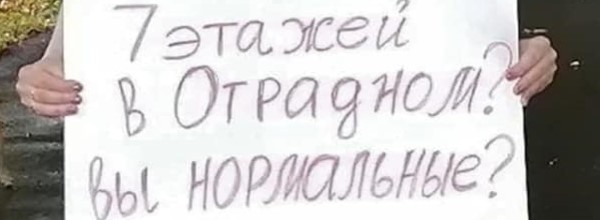 7 этажей
в Отрадном?
вы нормальные?